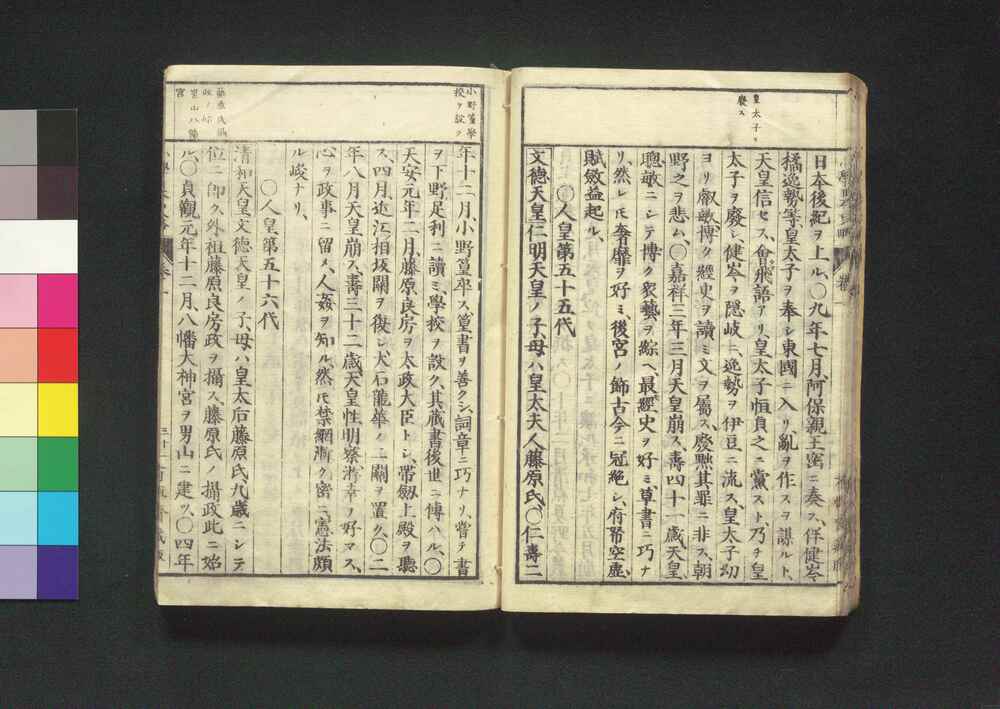 皇太子ヲ
廢ス
日本後紀ヲ上ル、〇九年七月、阿保親王密ニ奏ス、伴健岑
橘逸勢等、皇太子ヲ奉シ東國ニ入リ、亂ヲ作スヲ謀ルト、
天皇信セス、會飛語アリ、皇太子恒貞之ニ黨スト、乃チ皇
太子ヲ廢シ、健岑ヲ隱岐ニ、逸勢ヲ伊豆ニ流ス、皇太子幼
ヨリ叡敏、博ク經史ヲ讀ミ文ヲ屬ス、廢黜其罪ニ非ス、朝
野之ヲ悲ム、〇嘉祥三年三月天皇崩ス、壽四十一歳、天皇
聰敏ニシテ博ク衆藝ヲ綜ヘ、最經史ヲ好ミ、草書ニ巧ナ
リ、然レ𪜈奢靡ヲ好ミ、後宮ノ飾古今ニ冠絶シ、府帑空虛、
賦斂益起ル、
〇人皇第五十五代
文德天皇仁明天皇ノ子、母ハ皇太夫人藤原氏、〇仁壽二
小野篁學
校ヲ設ク
藤原氏攝
政ノ始
男山八幡
宮
年十二月、小野篁卒ス、篁書ヲ善クシ、詞章ニ巧ナリ、嘗テ書
ヲ下野足利ニ讀ミ、學校ヲ設ク、其藏書後世ニ傳ハル、〇
天安元年二月、藤原良房ヲ太政大臣トシ、帶劔上殿ヲ聽
ス、四月、近江相坂關ヲ復シ、大石龍華ノ二關ヲ置ク、〇二
年八月天皇崩ス、壽三十二歳、天皇性明察、游幸ヲ好マス、
心ヲ政事ニ留メ、人姦ヲ知ル、然𪜈禁網漸ク密ニ、憲法頗
ル峻ナリ、
〇人皇第五十六代
清和天皇文德天皇ノ子、母ハ皇太后藤原氏、九歳ニシテ
位ニ即ク、外祖藤原良房政ヲ攝ス、藤原氏ノ攝政此ニ始
ル、〇貞觀元年十二月、八幡大神宮ヲ男山ニ建ツ、〇四年